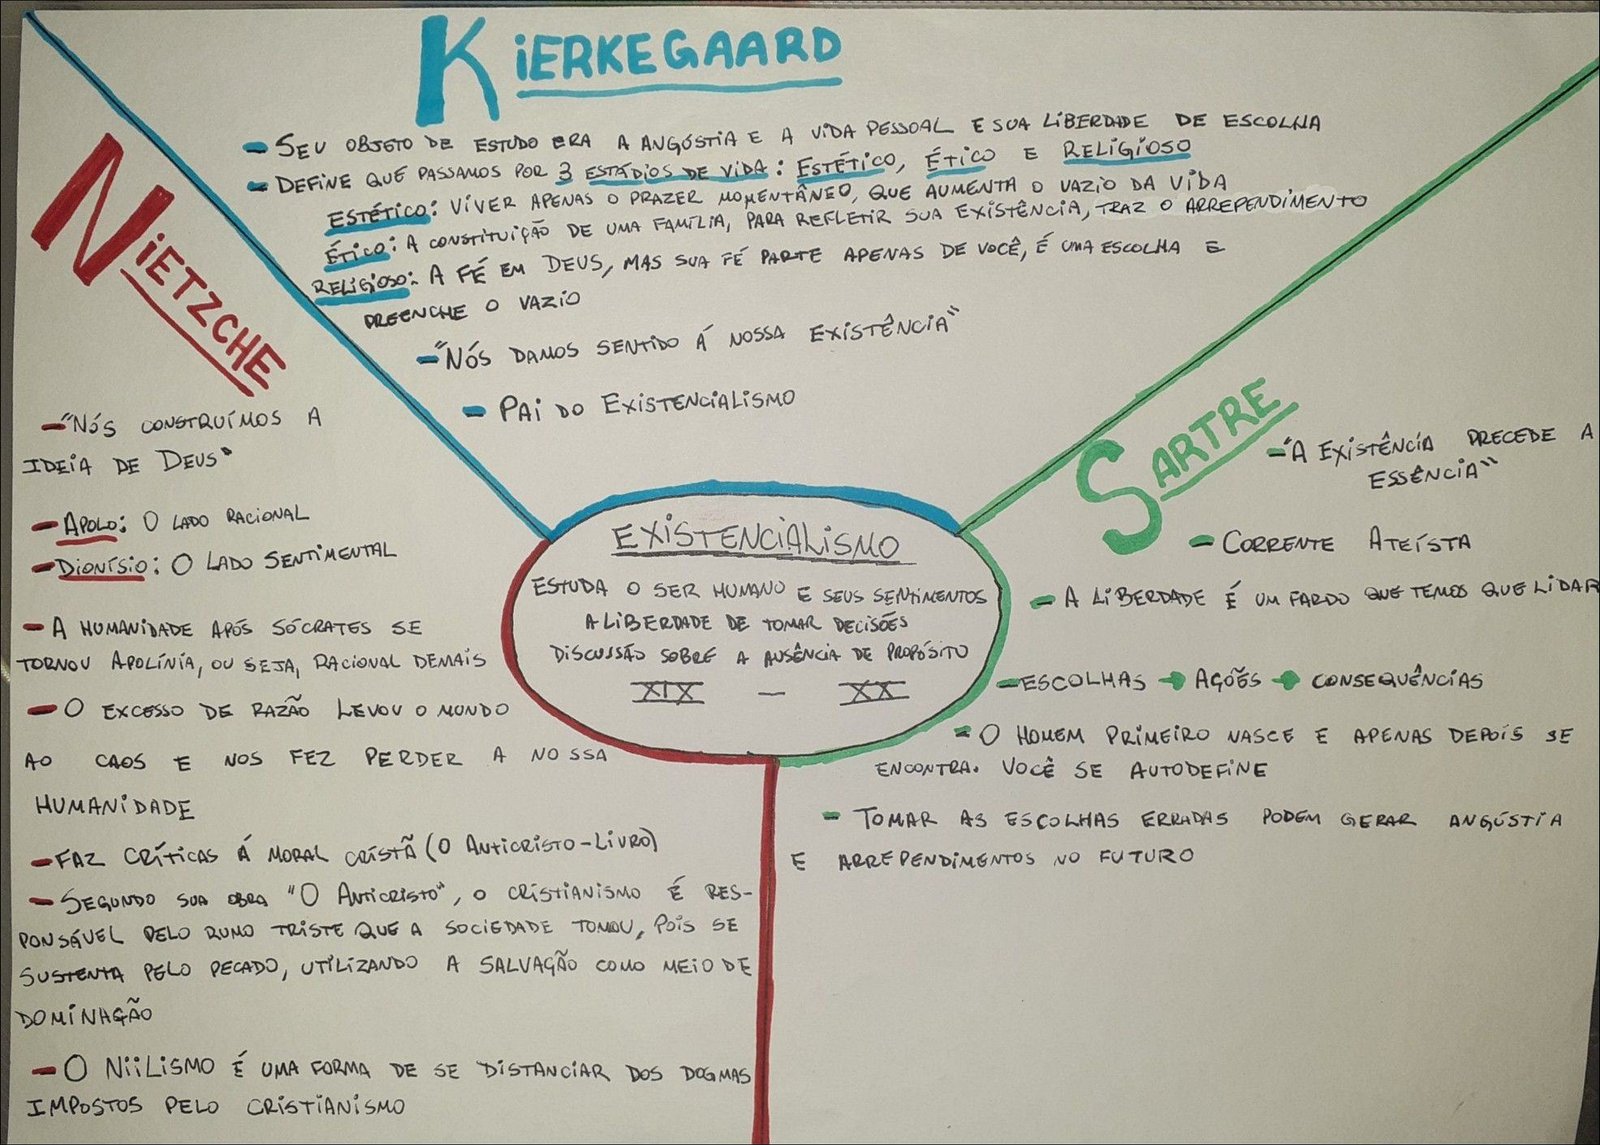 KIERKEGAARD
- SEU OBJETO DE ESTUDO ERA A ANGÚSTIA E A VIDA PESSOAL E SUA LIBERDADE DE ESCOLHA
- DEFINE QUE PASSAMOS POR 3 ESTÁDIOS DE VIDA: ESTÉTICO, ÉTICO E RELIGIOSO
ESTÉTICO: VIVER APENAS O PRAZER MOMENTÂNEO, QUE AUMENTA O VAZIO DA VIDA
ÉTICO: A CONSTITUIÇÃO DE UMA FAMÍLIA, PARA REFLETIR SUA EXISTÊNCIA, TRAZ O ARREPENDIMENTO
RELIGIOSO: A FÉ EM DEUS, MAS SUA FÉ PARTE APENAS DE VOCÊ, É UMA ESCOLHA E
PREENCHE O VAZIO
- "NÓS DAMOS SENTIDO Á NOSSA EXISTÊNCIA"
- PAI DO EXISTENCIALISMO
NIETZCHE
- "NÓS CONSTRUÍMOS A
IDEIA DE DEUS"
- APOLO: O LADO RACIONAL
- DIONÍSIO: O LADO SENTIMENTAL
- A HUMANIDADE APÓS SÓCRATES SE
TORNOU APOLÍNIA, OU SEJA, RACIONAL DEMAIS
- O EXCESSO DE RAZÃO LEVOU O MUNDO
AO CAOS E NOS FEZ PERDER A NOSSA
HUMANIDADE
- FAZ CRÍTICAS Á MORAL CRISTÃ (O ANTICRISTO-LIVRO)
- SEGUNDO SUA OBRA "O ANTICRISTO", O CRISTIANISMO É RES-
PONSÁVEL PELO RUMO TRISTE QUE A SOCIEDADE TOMOU, POIS SE
SUSTENTA PELO PECADO, UTILIZANDO A SALVAÇÃO COMO MEIO DE
DOMINAÇÃO
- O NIILISMO É UMA FORMA DE SE DISTANCIAR DOS DOGMAS
IMPOSTOS PELO CRISTIANISMO
EXISTENCIALISMO
ESTUDA O SER HUMANO E SEUS SENTIMENTOS
A LIBERDADE DE TOMAR DECISÕES
DISCUSSÃO SOBRE A AUSÊNCIA DE PROPÓSITO
XIX - XX
SARTRE
- "A EXISTÊNCIA PRECEDE A
ESSÊNCIA"
- CORRENTE ATEÍSTA
- A LIBERDADE É UM FARDO QUE TEMOS QUE LIDAR
- ESCOLHAS → AÇÕES → CONSEQUÊNCIAS
- O HOMEM PRIMEIRO NASCE E APENAS DEPOIS SE
ENCONTRA. VOCÊ SE AUTODEFINE
- TOMAR AS ESCOLHAS ERRADAS PODEM GERAR ANGÚSTIA
E ARREPENDIMENTOS NO FUTURO